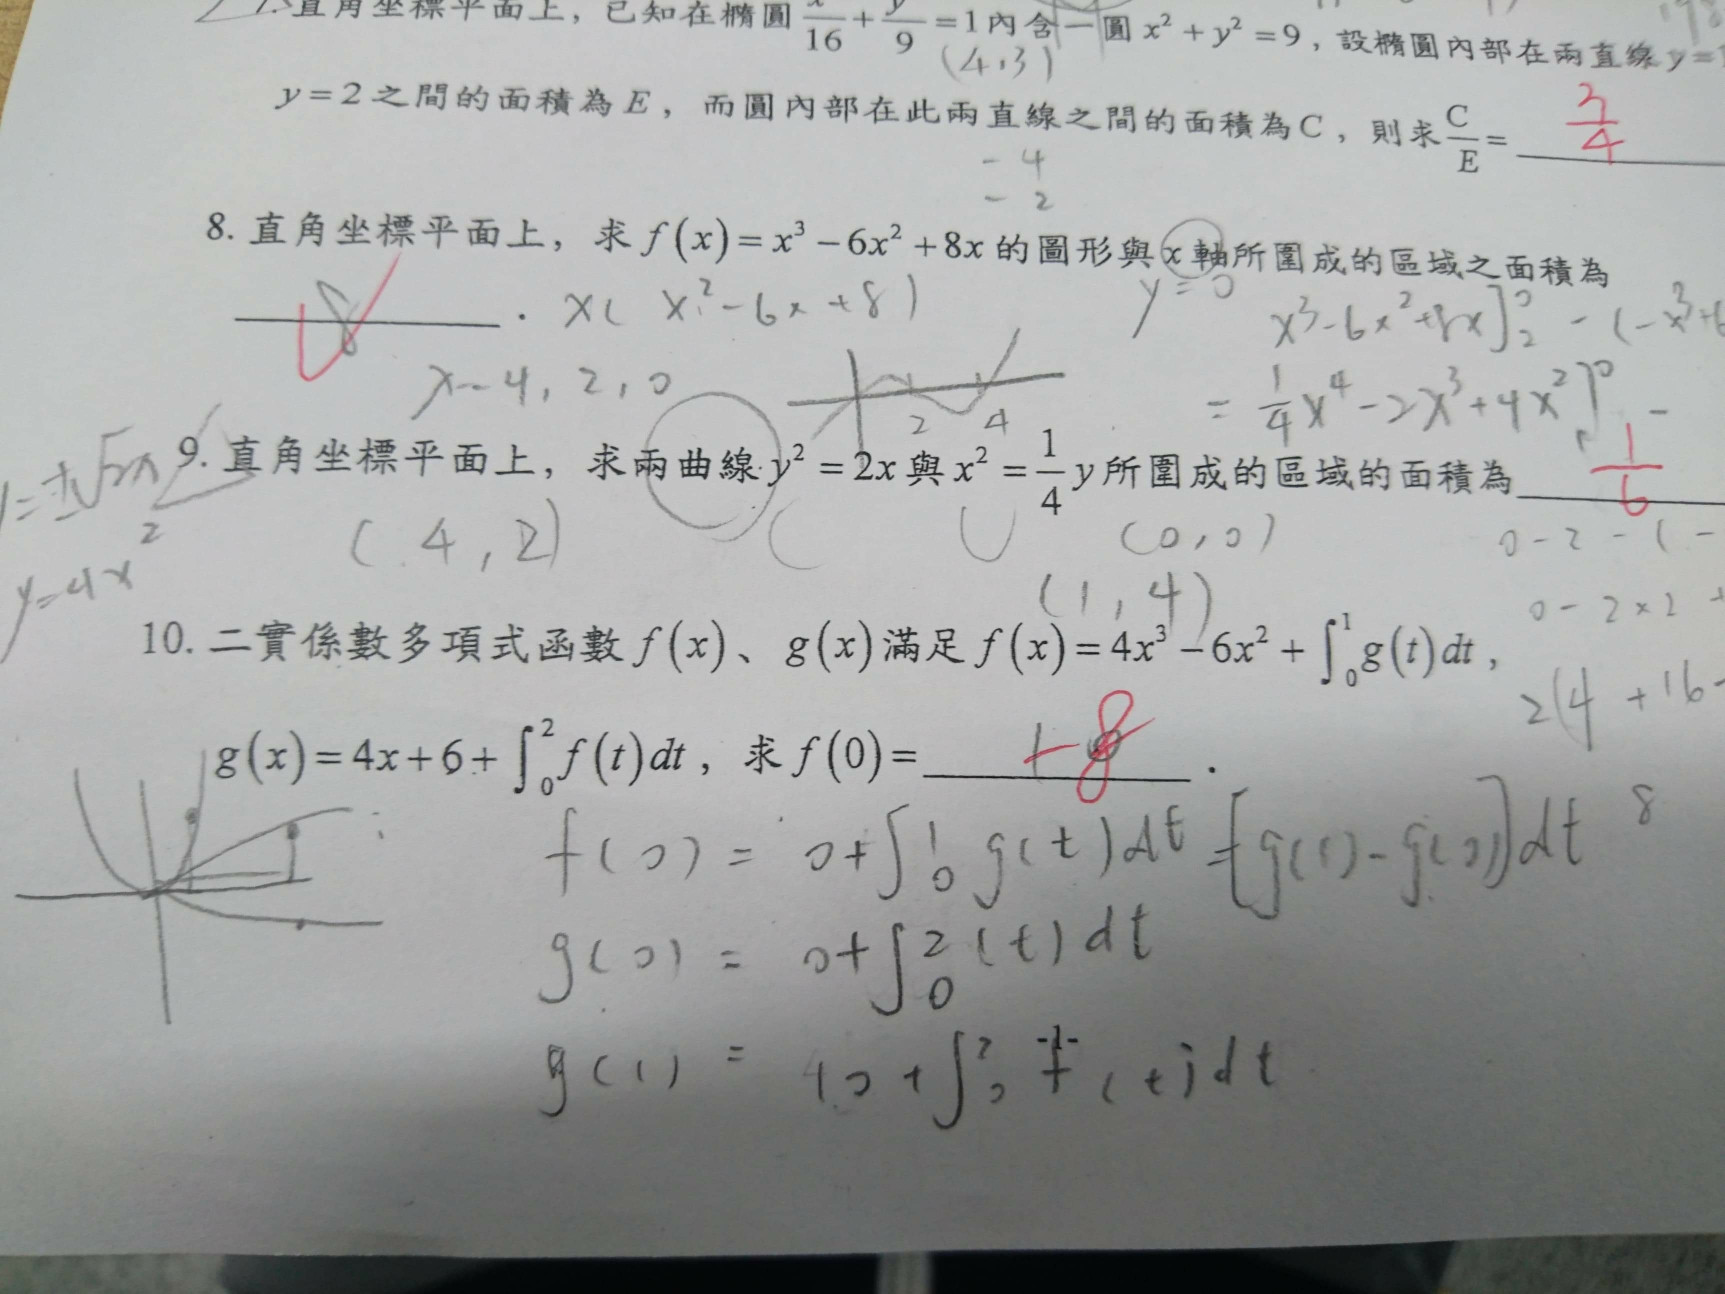 直角坐標平面上，已知在橢圓 x²/16 + y²/9 = 1 內含一圓 x² + y² = 9，設橢圓內部在兩直線 y =
(4,3)
y = 2 之間的面積為 E，而圓內部在此兩直線之間的面積為 C，則求 C/E = 3/4
- 4
- 2
8. 直角坐標平面上，求 f(x) = x³ - 6x² + 8x 的圖形與 x 軸所圍成的區域之面積為
8 . x( x² - 6x + 8 ) y = 0
x³ - 6x² + 8x ]⁰₂ - (- x³ + 6
x = 4, 2, 0
2 4
= 1/4 x⁴ - 2x³ + 4x² ]⁰ -
y = ±√2x
9. 直角坐標平面上，求兩曲線 y² = 2x 與 x² = 1/4 y 所圍成的區域的面積為 1/6
y = 4x²
( 4 , 2 ) (0,0) 0 - 2 - ( -
(1,4) 0 - 2×2 +
10. 二實係數多項式函數 f(x)、g(x) 滿足 f(x) = 4x³ - 6x² + ∫₀¹ g(t) dt，
2(4 + 16 -
g(x) = 4x + 6 + ∫₀² f(t) dt，求 f(0) = -8 .
f(0) = 0 + ∫₀¹ g(t) dt = [g(1) - g(0)] dt 8
g(0) = 0 + ∫₀² (t) dt
g(1) = 10 + ∫₀² f(t) dt
-1-